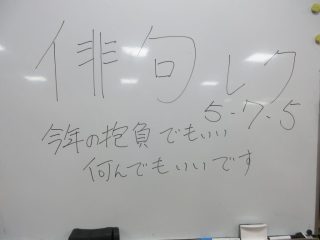 俳句レク
5-7-5
今年の抱負でもいい
何んでもいいです